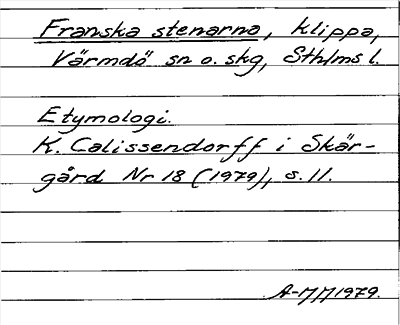 Franska stenarna, klippa,
Värmdö sn o. skg, Sthlms l.
Etymologi.
K. Calissendorff i Skär-
gård Nr 18 (1979), s. 11.
1979.